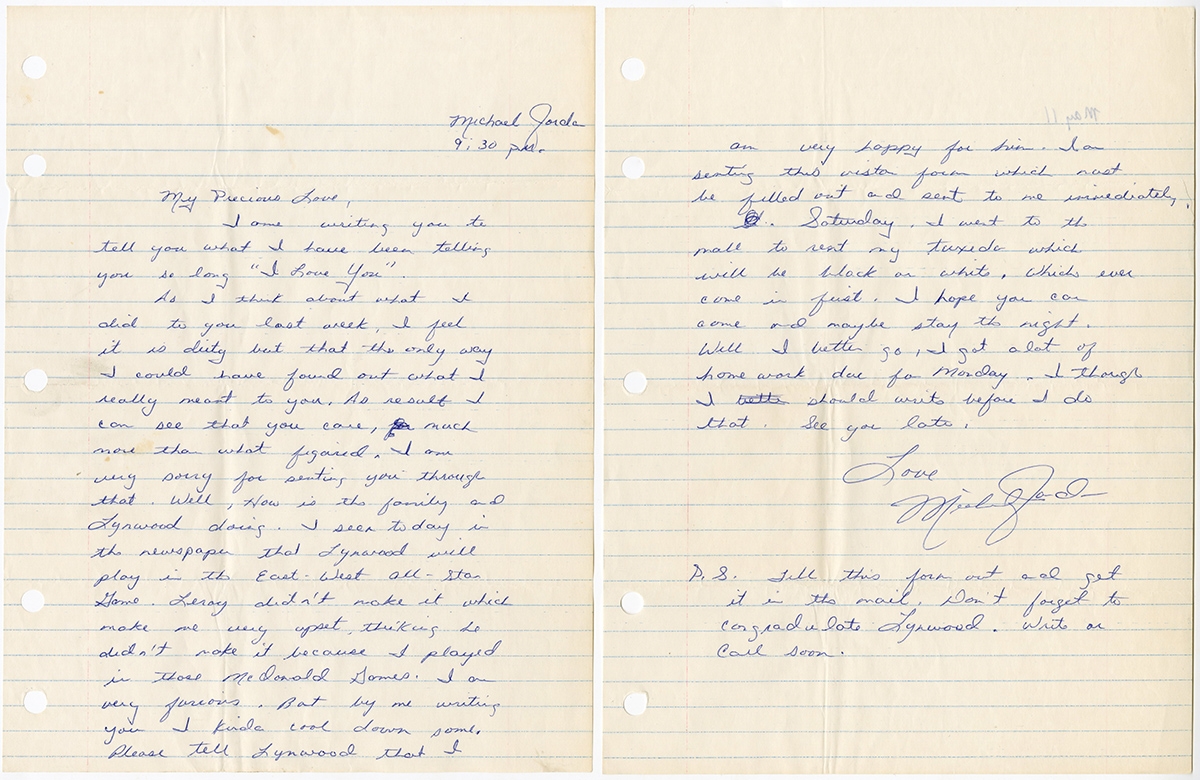 Michael Jorda
9:30 pm.
My Precious Love,
I ame writing you to
tell you what I have been telling
you so long "I Love You".
As I think about what I
did to you last week, I feel
it is dirty but that the only way
I could have found out what I
really meant to you. As result I
can see that you care, much
more than what figared. I am
very sorry for senting you through
that. Well, How is the family and
Lynwood doing. I seen today in
the newspaper that Lynwood will
play in the East-West all-Star
Game. Leroy didn't make it which
make me very upset, thiking he
didn't make it because I played
in those McDonald Games. I am
very furious. But by me writing
you I kinda cool down some.
Please tell Lynwood that I
May 11
am very happy for him. I am
senting this vistor form which must
be filled out and sent to me immediately!
. Saturday, I went to the
mall to rent my tuxedo which
will be black or white. Which ever
come in first. I hope you can
come and maybe stay the night.
Well I better go, I got alot of
home work due for Monday. I though
I should write before I do
that. See you late.
Love
Michael Jordan
P.S. Fill this form out and get
it in the mail. Don't forget to
congradulate Lynwood. Write or
Call soon.